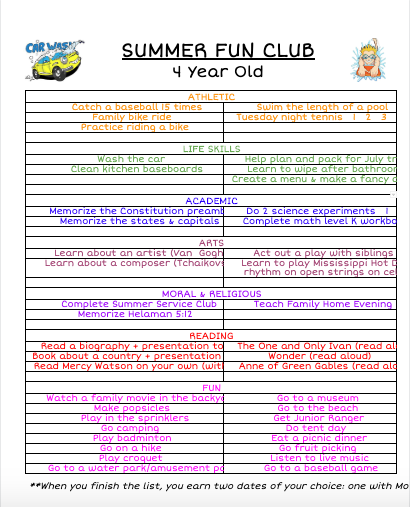 CAR WASH
SUMMER FUN CLUB
4 Year Old
ATHLETIC
Catch a baseball 15 times Swim the length of a pool
Family bike ride Tuesday night tennis 1 2 3
Practice riding a bike
LIFE SKILLS
Wash the car Help plan and pack for July tr
Clean kitchen baseboards Learn to wipe after bathroor
Create a menu & make a fancy d
ACADEMIC
Memorize the Constitution preamb Do 2 science experiments 1
Memorize the states & capitals Complete math level K workbo
ARTS
Learn about an artist (Van Gogh Act out a play with siblings
Learn about a composer (Tchaikovs Learn to play Mississippi Hot D
rhythm on open strings on cel
MORAL & RELIGIOUS
Complete Summer Service Club Teach Family Home Evening
Memorize Helaman 5:12
READING
Read a biography + presentation to The One and Only Ivan (read al
Book about a country + presentation Wonder (read aloud)
Read Mercy Watson on your own (wit Anne of Green Gables (read alo
FUN
Watch a family movie in the backy Go to a museum
Make popsicles Go to the beach
Play in the sprinklers Get Junior Ranger
Go camping Do tent day
Play badminton Eat a picnic dinner
Go on a hike Go fruit picking
Play croquet Listen to live music
Go to a water park/amusement pa Go to a baseball game
**When you finish the list, you earn two dates of your choice: one with Mo